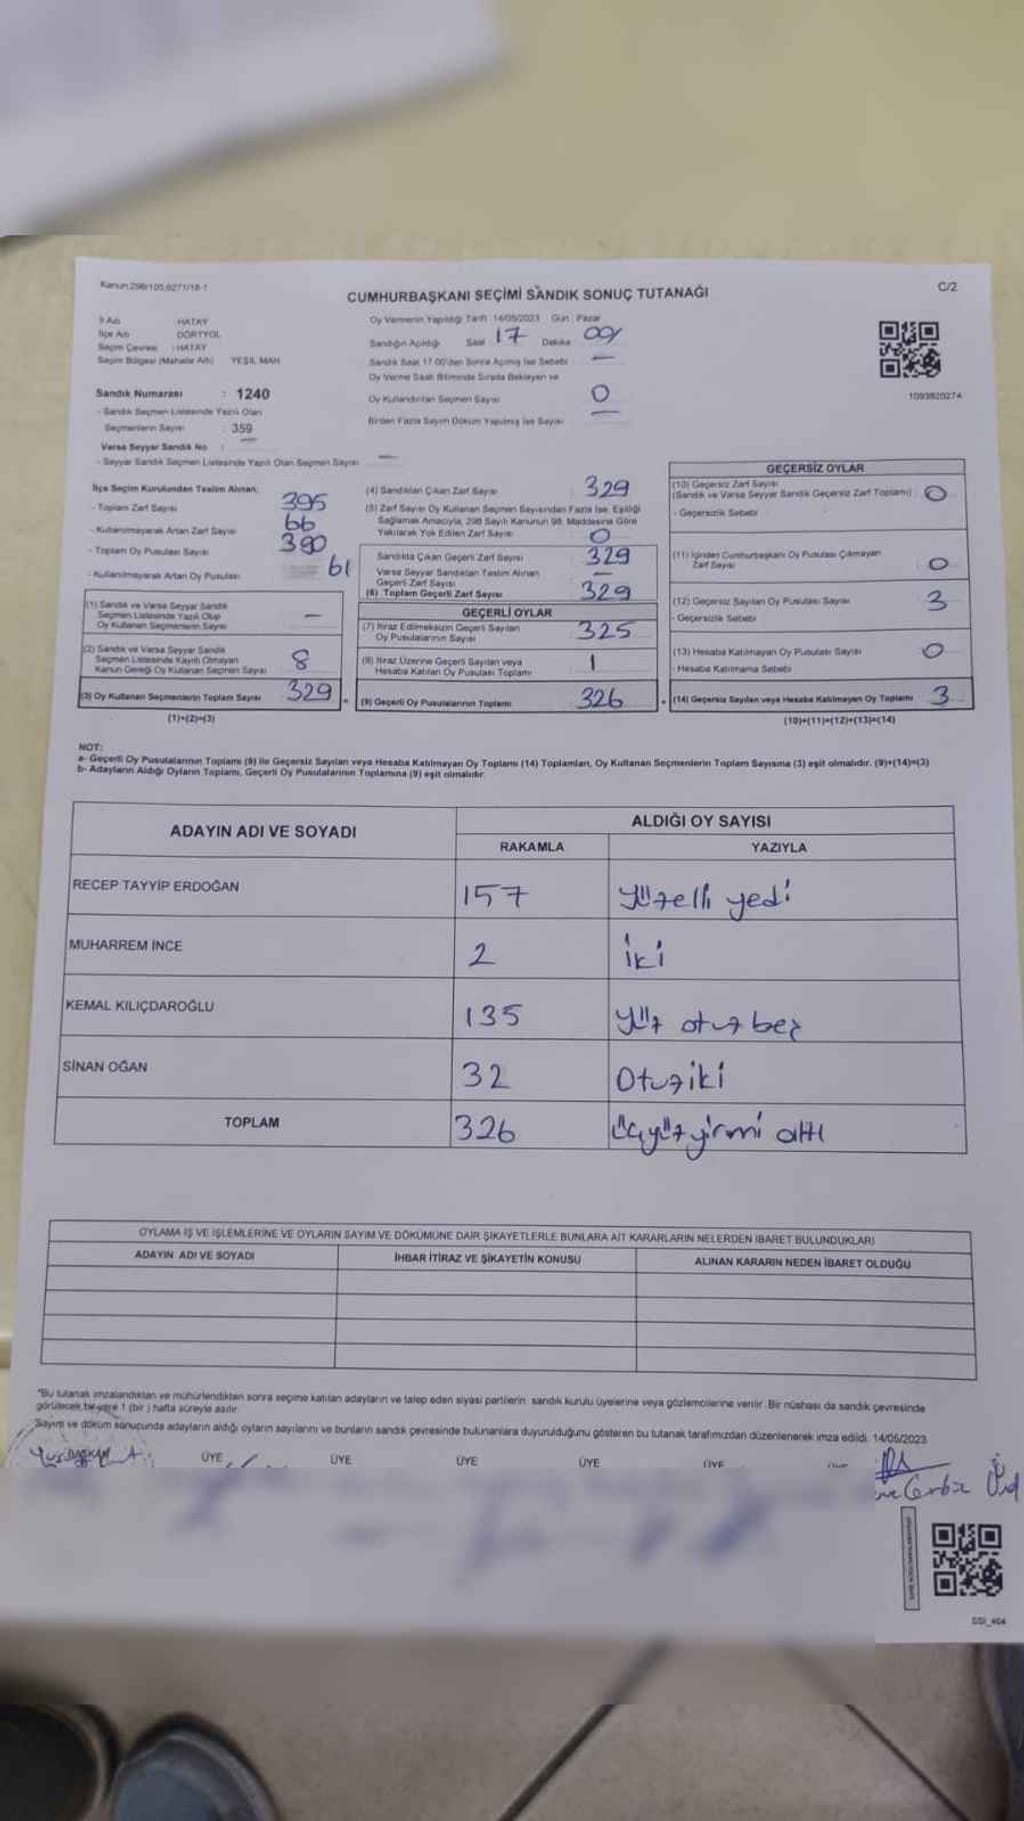 Kanun:298/105,6271/18-1
C/2
CUMHURBAŞKANI SEÇİMİ SANDIK SONUÇ TUTANAĞI
İl Adı : HATAY
İlçe Adı : DÖRTYOL
Seçim Çevresi : HATAY
Seçim Bölgesi (Mahalle Adı) YEŞİL MAH.
Oy Vermenin Yapıldığı Tarih 14/05/2023 Gün : Pazar
Sandığın Açıldığı Saat 17 Dakika 09
Sandık Saat 17.00'den Sonra Açılmış İse Sebebi —
Oy Verme Saati Bitiminde Sırada Bekleyen ve
Oy Kullandırılan Seçmen Sayısı 0
Birden Fazla Sayım Döküm Yapılmış İse Sayısı —
1093820274
Sandık Numarası : 1240
- Sandık Seçmen Listesinde Yazılı Olan
Seçmenlerin Sayısı : 359
Varsa Seyyar Sandık No : —
- Seyyar Sandık Seçmen Listesinde Yazılı Olan Seçmen Sayısı —
İlçe Seçim Kurulundan Teslim Alınan;
- Toplam Zarf Sayısı 395
- Kullanılmayarak Artan Zarf Sayısı 66
- Toplam Oy Pusulası Sayısı 390
- Kullanılmayarak Artan Oy Pusulası 61
(1) Sandık ve Varsa Seyyar Sandık
Seçmen Listesinde Yazılı Olup
Oy Kullanan Seçmenlerin Sayısı —
(2) Sandık ve Varsa Seyyar Sandık
Seçmen Listesinde Kayıtlı Olmayan
Kanun Gereği Oy Kullanan Seçmen Sayısı 8
(3) Oy Kullanan Seçmenlerin Toplam Sayısı 329
(1)+(2)=(3)
(4) Sandıktan Çıkan Zarf Sayısı 329
(5) Zarf Sayısı Oy Kullanan Seçmen Sayısından Fazla İse, Eşitliği
Sağlamak Amacıyla, 298 Sayılı Kanunun 98. Maddesine Göre
Yakılarak Yok Edilen Zarf Sayısı 0
Sandıkta Çıkan Geçerli Zarf Sayısı 329
Varsa Seyyar Sandıktan Teslim Alınan
Geçerli Zarf Sayısı —
(6) Toplam Geçerli Zarf Sayısı 329
GEÇERLİ OYLAR
(7) İtiraz Edilmeksizin Geçerli Sayılan
Oy Pusulalarının Sayısı 325
(8) İtiraz Üzerine Geçerli Sayılan veya
Hesaba Katılan Oy Pusulası Toplamı 1
(9) Geçerli Oy Pusulalarının Toplamı 326
GEÇERSİZ OYLAR
(10) Geçersiz Zarf Sayısı
(Sandık ve Varsa Seyyar Sandık Geçersiz Zarf Toplamı) 0
- Geçersizlik Sebebi
(11) İçinden Cumhurbaşkanı Oy Pusulası Çıkmayan
Zarf Sayısı 0
(12) Geçersiz Sayılan Oy Pusulası Sayısı 3
- Geçersizlik Sebebi
(13) Hesaba Katılmayan Oy Pusulası Sayısı 0
- Hesaba Katılmama Sebebi
(14) Geçersiz Sayılan veya Hesaba Katılmayan Oy Toplamı 3
(10)+(11)+(12)+(13)=(14)
NOT:
a- Geçerli Oy Pusulalarının Toplamı (9) ile Geçersiz Sayılan veya Hesaba Katılmayan Oy Toplamı (14) Toplamları, Oy Kullanan Seçmenlerin Toplam Sayısına (3) eşit olmalıdır. (9)+(14)=(3)
b- Adayların Aldığı Oyların Toplamı, Geçerli Oy Pusulalarının Toplamına (9) eşit olmalıdır.
ADAYIN ADI VE SOYADI
ALDIĞI OY SAYISI
RAKAMLA YAZIYLA
RECEP TAYYİP ERDOĞAN 157 yüzelli yedi
MUHARREM İNCE 2 iki
KEMAL KILIÇDAROĞLU 135 yüz otuz beş
SİNAN OĞAN 32 Otuziki
TOPLAM 326 üçyüz yirmi altı
OYLAMA İŞ VE İŞLEMLERİNE VE OYLARIN SAYIM VE DÖKÜMÜNE DAİR ŞİKAYETLERLE BUNLARA AİT KARARLARIN NELERDEN İBARET BULUNDUKLARI
ADAYIN ADI VE SOYADI İHBAR İTİRAZ VE ŞİKAYETİN KONUSU ALINAN KARARIN NEDEN İBARET OLDUĞU
"Bu tutanak imzalandıktan ve mühürlendikten sonra seçime katılan adayların ve talep eden siyasi partilerin sandık kurulu üyelerine veya gözlemcilerine verilir. Bir nüshası da sandık çevresinde
görülecek bir yere 1 (bir ) hafta süreyle asılır.
Sayım ve döküm sonucunda adayların aldığı oyların sayılarını ve bunların sandık çevresinde bulunanlara duyurulduğunu gösteren bu tutanak tarafımızdan düzenlenerek imza edildi. 14/05/2023
ÜYE ÜYE ÜYE ÜYE ÜYE